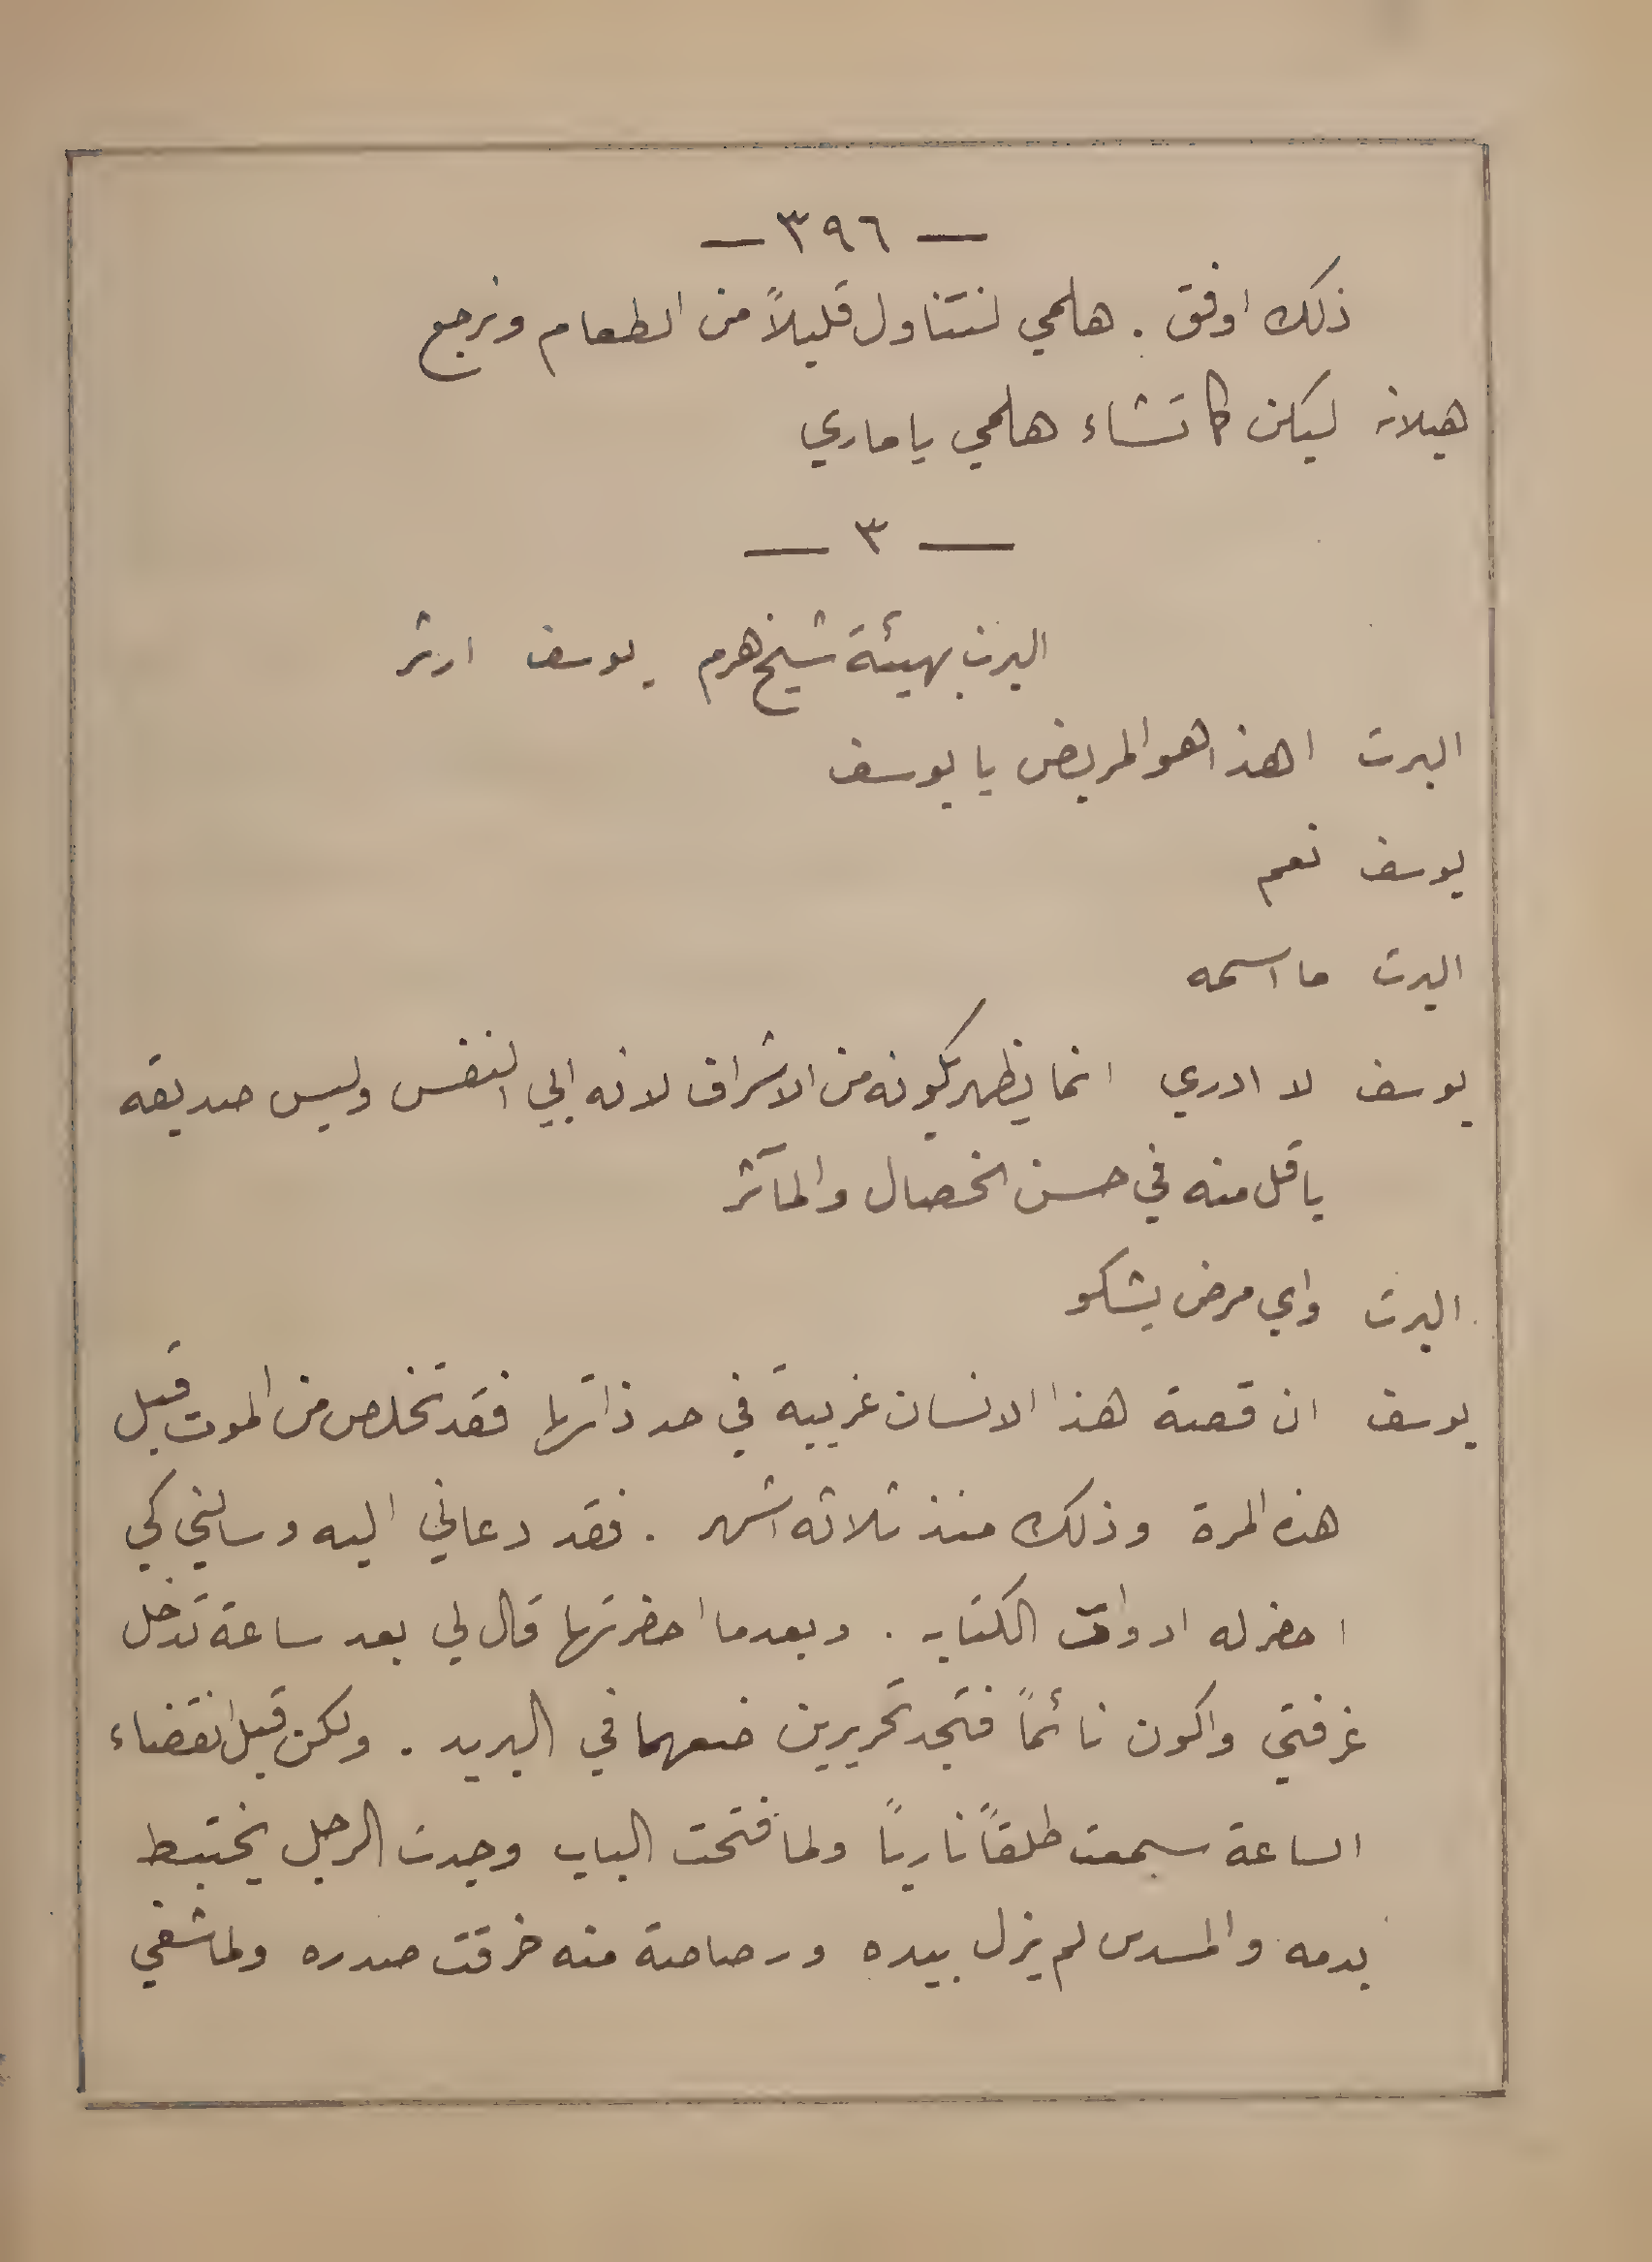 — ٣٩٦ —
ذلك اوفق . هلمي لنتناول قليلاً من الطعام ونرجع
هيلانه ليكن كما تشاء هلمي يا ماري
— ٣ —
البرت بهيئة شيخ هرم . يوسف ارثر
البرت اهذا هو المريض يا يوسف
يوسف نعم
البرت ما اسمه
يوسف لا ادري انما يظهر بكونه من الاشراف لانه ابي النفس وليس صديقه
باقل منه في حسن الخصال والمآثر
البرت واي مرض يشكو
يوسف ان قصة هذا الانسان غريبة في حد ذاتها فقد تخلص من الموت قبل
هذه المرة وذلك منذ ثلاثه اشهر . فقد دعاني اليه وسالني كي
احضر له ادوات الكتابه . وبعدما احضرتها قال لي بعد ساعة تدخل
غرفتي واكون نائماً فتجد تحريرين ضعهما في البريد . ولكن قبل انقضاء
الساعة سمعت طلقاً نارياً ولما فتحت الباب وجدت الرجل يختبط
بدمه والمسدس لم يزل بيده ورصاصة منه خرقت صدره ولما شفي